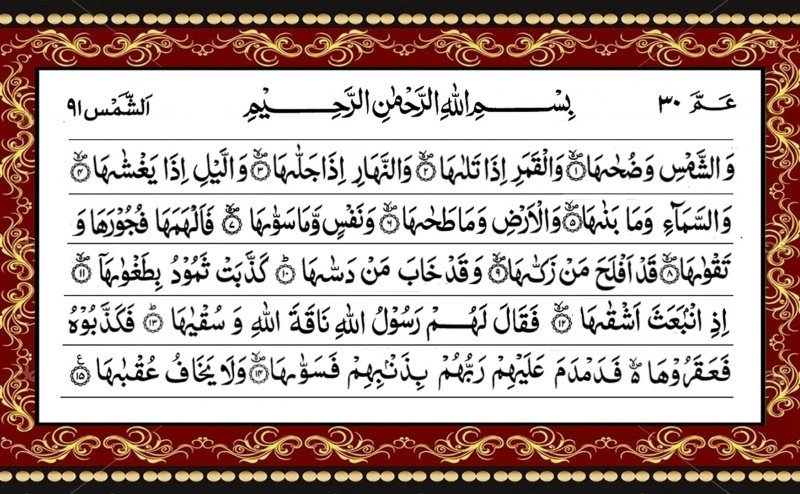 عـمّ ٣٠ بِسْــــــمِ اللّٰهِ الرَّحْمٰنِ الرَّحِــــــيْمِ اَلشَّمْس ٩١
وَالشَّمْسِ وَضُحٰىهَا ۙ﴿١﴾ وَالْقَمَرِ اِذَا تَلٰىهَا ۙ﴿٢﴾ وَالنَّهَارِ اِذَا جَلّٰىهَا ۙ﴿٣﴾ وَالَّيْلِ اِذَا يَغْشٰىهَا ۙ﴿٤﴾
وَالسَّمَآءِ وَمَا بَنٰىهَا ۙ﴿٥﴾ وَالْاَرْضِ وَمَا طَحٰىهَا ۙ﴿٦﴾ وَنَفْسٍ وَّمَا سَوّٰىهَا ۙ﴿٧﴾ فَاَلْهَمَهَا فُجُوْرَهَا وَ
تَقْوٰىهَا ۙ﴿٨﴾ قَدْ اَفْلَحَ مَنْ زَكّٰىهَا ۙ﴿٩﴾ وَقَدْ خَابَ مَنْ دَسّٰىهَا ؕ﴿١٠﴾ كَذَّبَتْ ثَمُوْدُ بِطَغْوٰىهَاۤ ۙ﴿١١﴾
اِذِ انْۢبَعَثَ اَشْقٰىهَا ۙ﴿١٢﴾ فَقَالَ لَهُمْ رَسُوْلُ اللّٰهِ نَاقَةَ اللّٰهِ وَ سُقْيٰهَا ؕ﴿١٣﴾ فَكَذَّبُوْهُ
فَعَقَرُوْهَا ۪ۙ فَدَمْدَمَ عَلَيْهِمْ رَبُّهُمْ بِذَنْۢبِهِمْ فَسَوّٰىهَا ۙ﴿١٤﴾ وَلَا يَخَافُ عُقْبٰهَا ﴿١٥﴾ ع